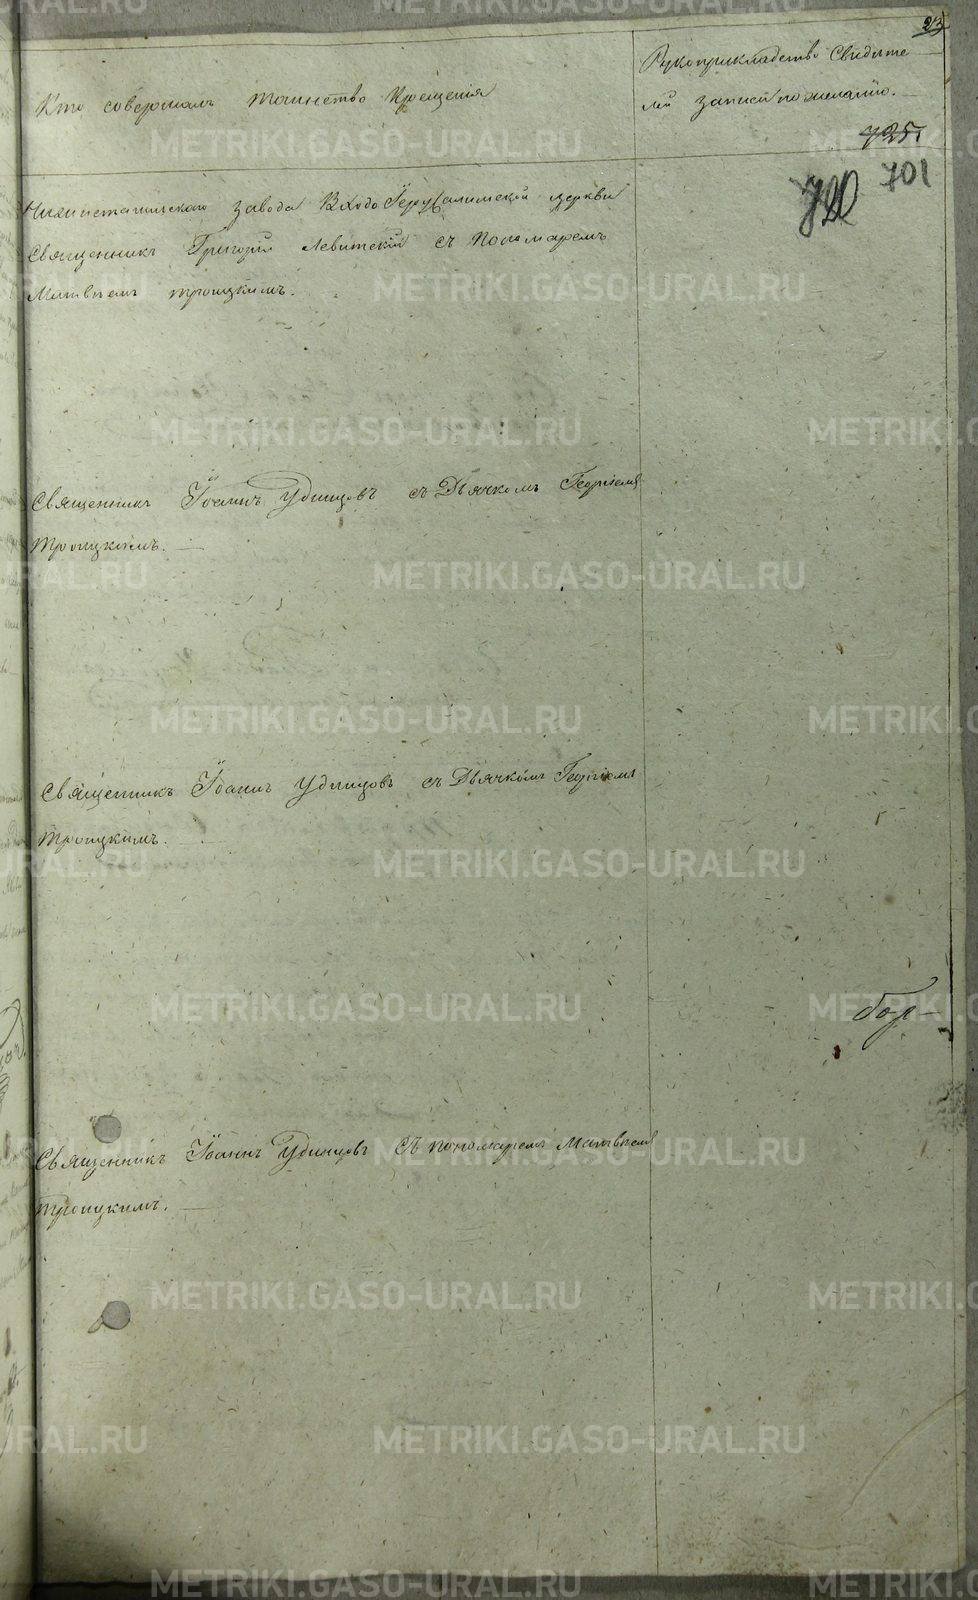 23
Кто совершалъ таинство крещенія
Рукоприкладство свидѣте
лей записей по желанію.
725
720 701
Нижнетагильскаго завода Входо Іерусалимской церкви
Священникъ Григорій Левитскій съ пономаремъ
Матвѣемъ троицкимъ.
Священникъ Іоаннъ Удинцовъ съ Дьячкомъ Георгіемъ
троицкимъ.
Священникъ Іоаннъ Удинцовъ съ Дьячкомъ Георгіемъ
троицкимъ.
Священникъ Іоаннъ Удинцовъ съ пономаремъ Матвѣемъ
троицкимъ.
METRIKI.GASO-URAL.RU